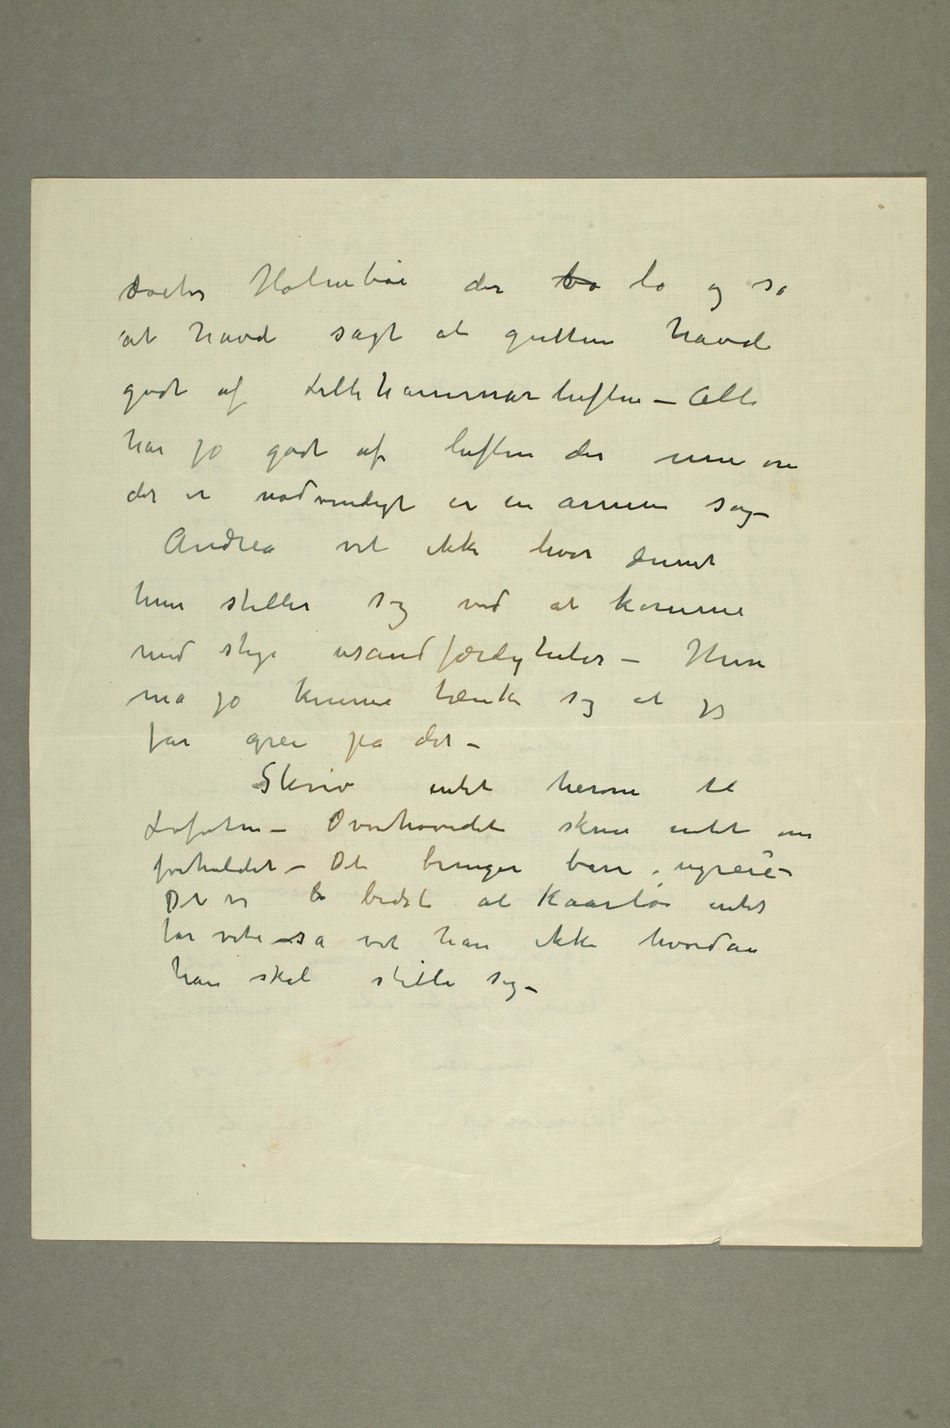 Doctor Holmboe der bo lo og sa
at havd sagt at gutten havd
godt af Lillehammerluften – Alle
har jo godt af luften der men om
det er nødvendigt er en annen sag –
Andrea vet ikke hvor dumt
hun stiller sig ved at komme
med slige usandfærdigheter – Hun
må jo kunne tænke sig at jeg
får greie på det –
Skriv intet herom til
Lofoten – Overhovedet skriv intet om
forholdet – Det bringer bare ugreie –
Det er b bedst at Kaarbø intet
får vite – så vet han ikke hvordan
han skal stille sig –